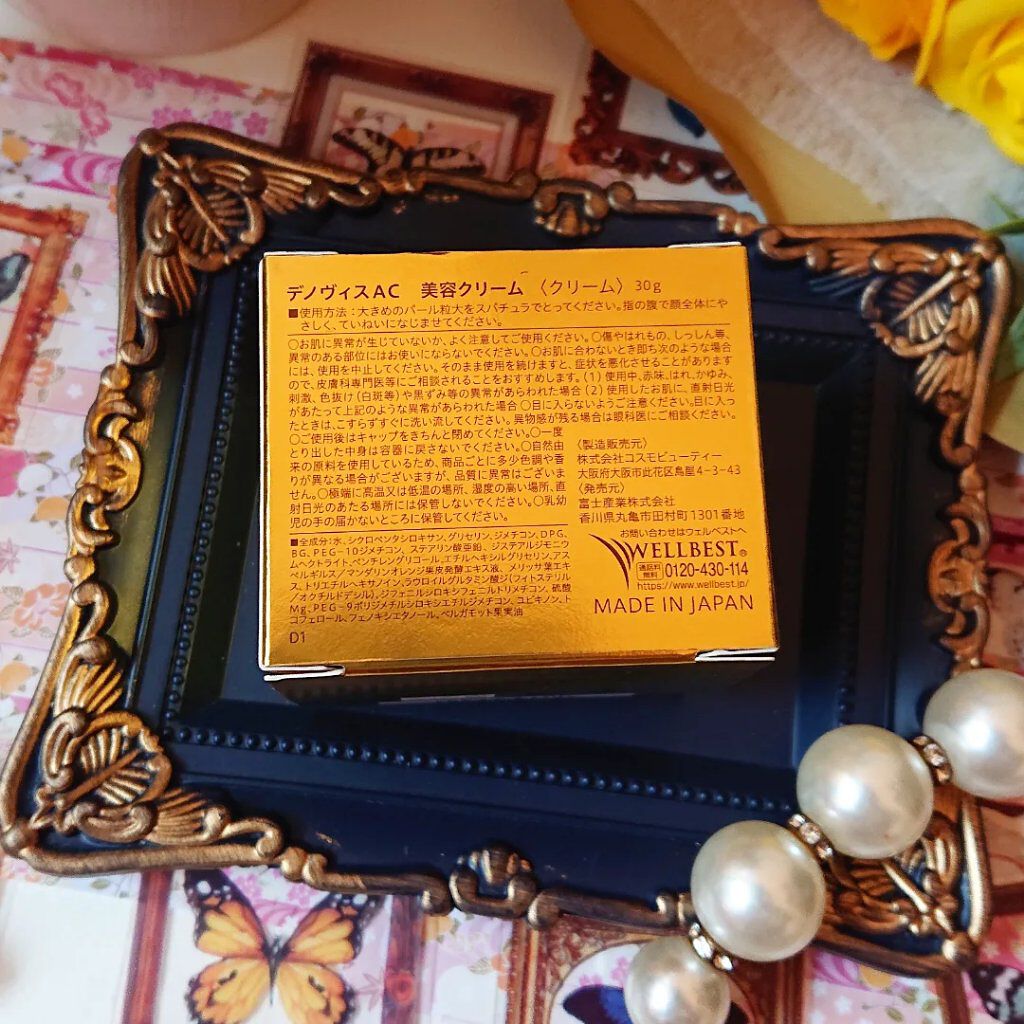 デノヴィスAC　美容クリーム　〈クリーム〉 30g
■使用方法：大きめのパール粒大をスパチュラでとってください。指の腹で顔全体にや
さしく、ていねいになじませてください。
○お肌に異常が生じていないか、よく注意してご使用ください。○傷やはれもの、しっしん等、
異常のある部位にはお使いにならないでください。○お肌に合わないとき即ち次のような場合
には、使用を中止してください。そのまま使用を続けますと、症状を悪化させることがあります
ので、皮膚科専門医等にご相談されることをおすすめします。(1)使用中、赤味、はれ、かゆみ、
刺激、色抜け(白斑等)や黒ずみ等の異常があらわれた場合(2)使用したお肌に、直射日光
があたって上記のような異常があらわれた場合○目に入らないようご注意ください。目に入っ
たときは、こすらずすぐに洗い流してください。異物感が残る場合は眼科医にご相談ください。
○ご使用後はキャップをきちんと閉めてください。○一度
とり出した中身は容器に戻さないでください。○自然由
来の原料を使用しているため、商品ごとに多少色調や香
りが異なる場合がございますが、品質に異常はございま
せん。○極端に高温又は低温の場所、湿度の高い場所、直
射日光のあたる場所には保管しないでください。○乳幼
児の手の届かないところに保管してください。
〈製造販売元〉
株式会社コスモビューティー
大阪府大阪市此花区島屋4-3-43
〈発売元〉
富士産業株式会社
香川県丸亀市田村町1301番地
■全成分：水、シクロペンタシロキサン、グリセリン、ジメチコン、DPG、
BG、PEG-10ジメチコン、ステアリン酸亜鉛、ジステアルジモニウ
ムヘクトライト、ペンチレングリコール、エチルヘキシルグリセリン、アス
ペルギルス/マンダリンオレンジ果皮発酵エキス液、メリッサ葉エキ
ス、トリエチルヘキサノイン、ラウロイルグルタミン酸ジ(フィトステリル
/オクチルドデシル)、ジフェニルシロキシフェニルトリメチコン、硫酸
Mg、PEG-9ポリジメチルシロキシエチルジメチコン、ユビキノン、ト
コフェロール、フェノキシエタノール、ベルガモット果実油
D1
お問い合わせはウェルベストへ
WELLBEST®
通話料無料 0120-430-114
https://www.wellbest.jp/
MADE IN JAPAN